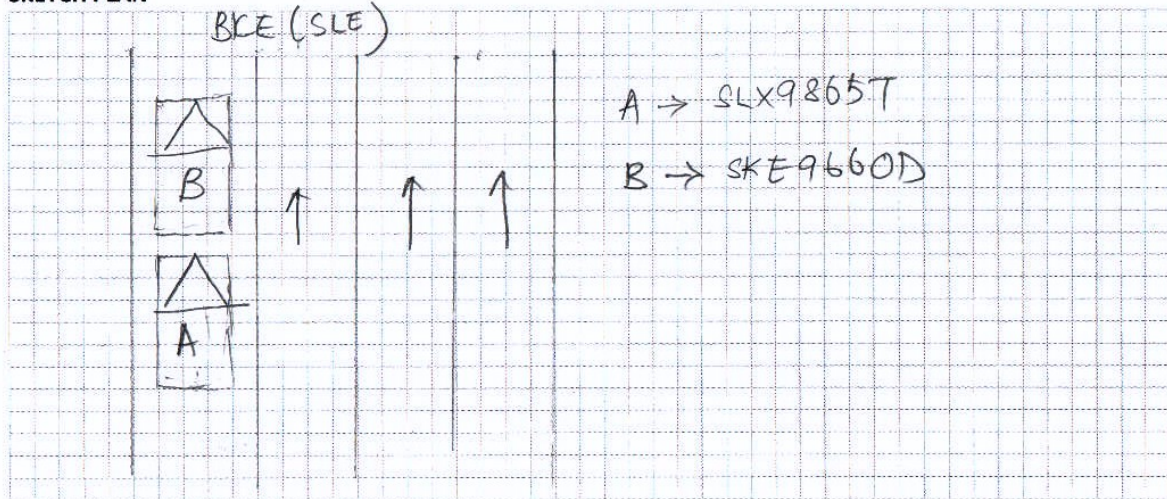 BKE (SLE)
A → SLX9865T
B → SKE9660D
B
A